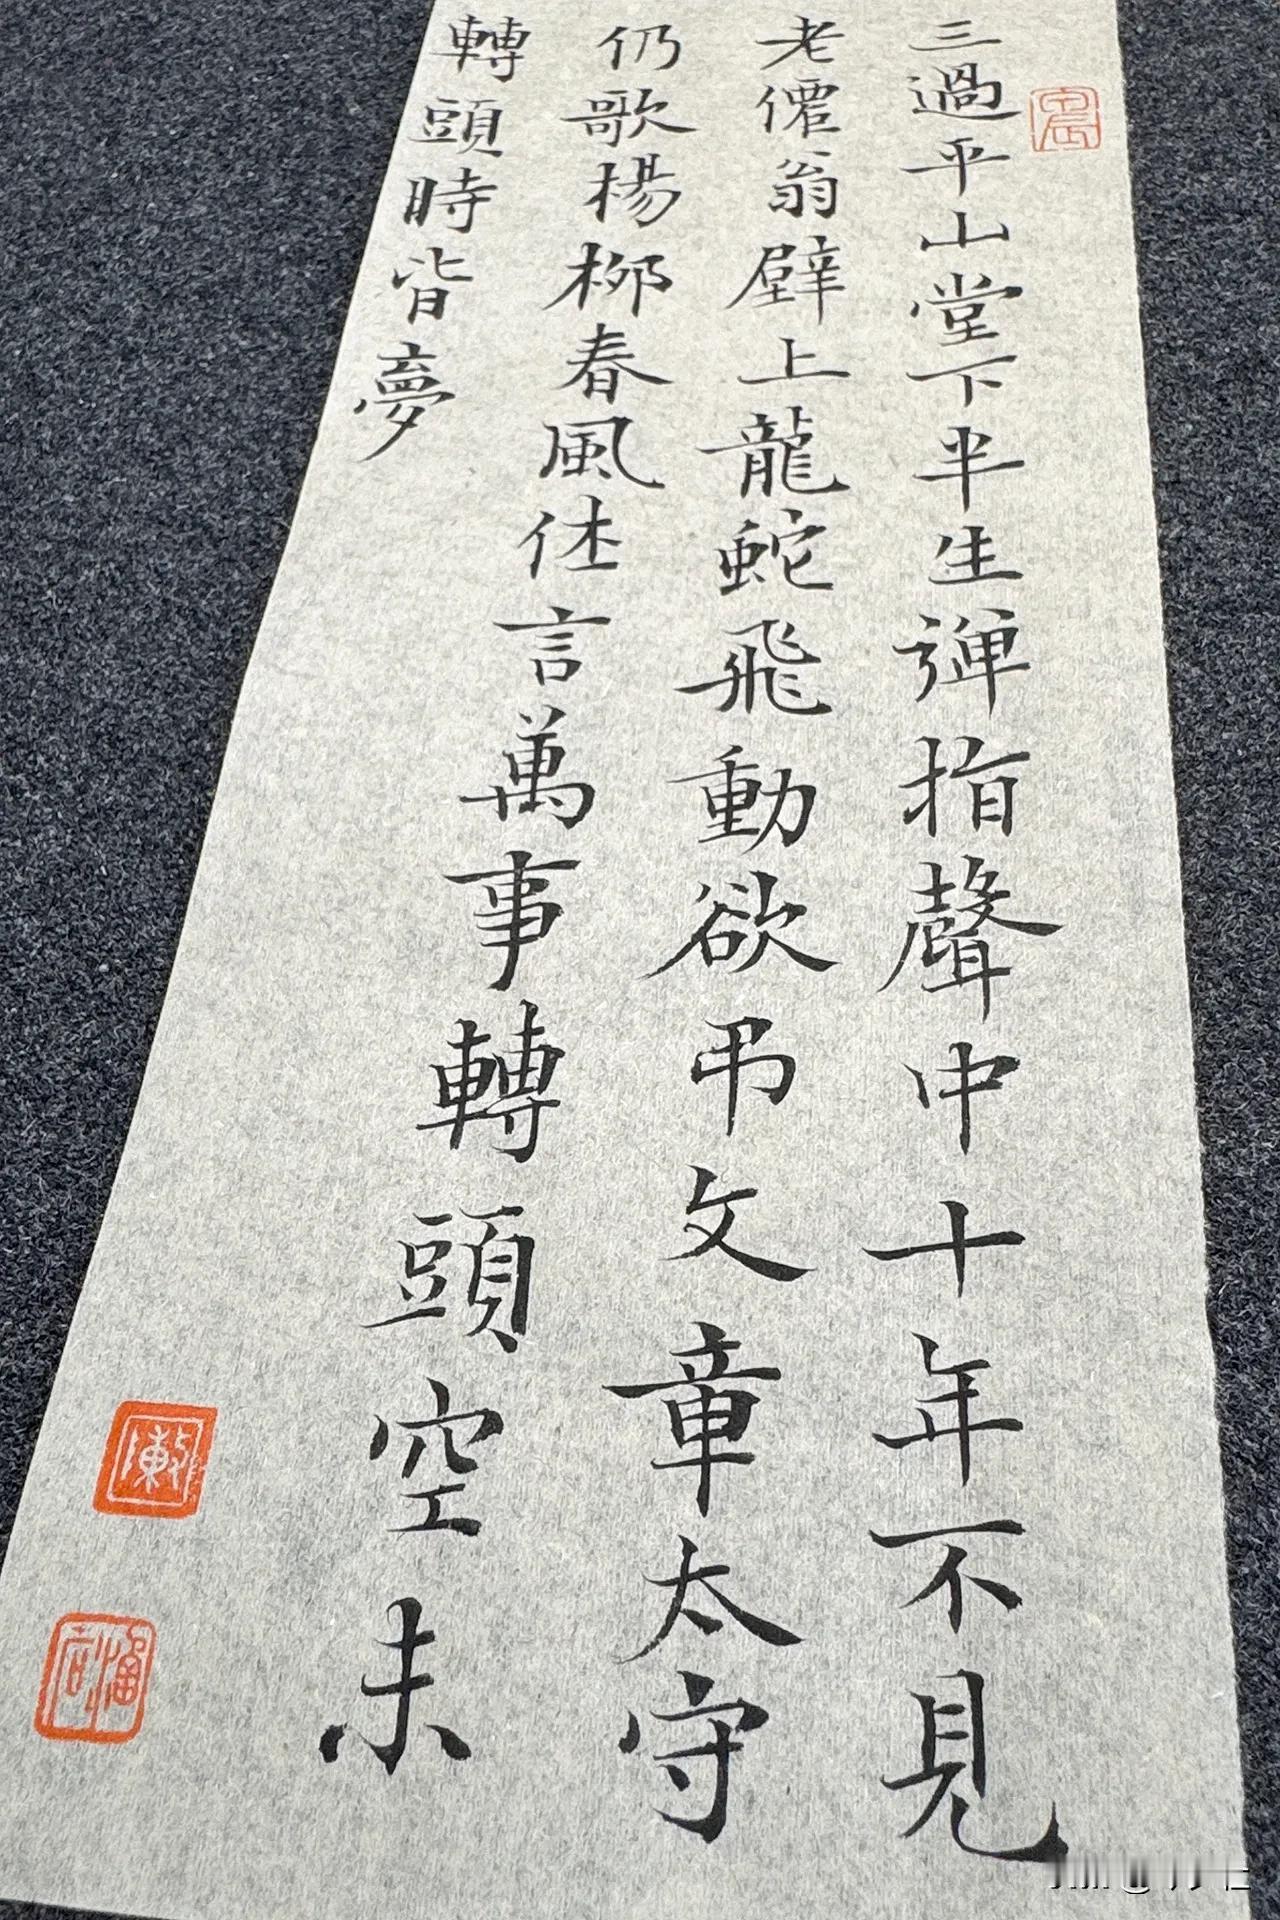 三過平山堂下半生彈指聲中十年不見
老僊翁壁上龍蛇飛動欲弔文章太守
仍歌楊柳春風休言萬事轉頭空未
轉頭時皆夢